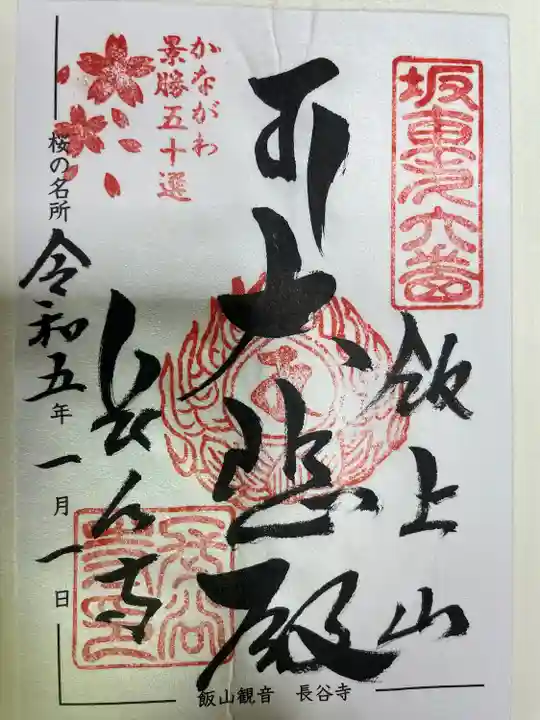 坂東第六番
飯上山
大悲殿
長谷寺
かながわ
景勝五十選
桜の名所
令和五年一月一日
飯山観音 長谷寺